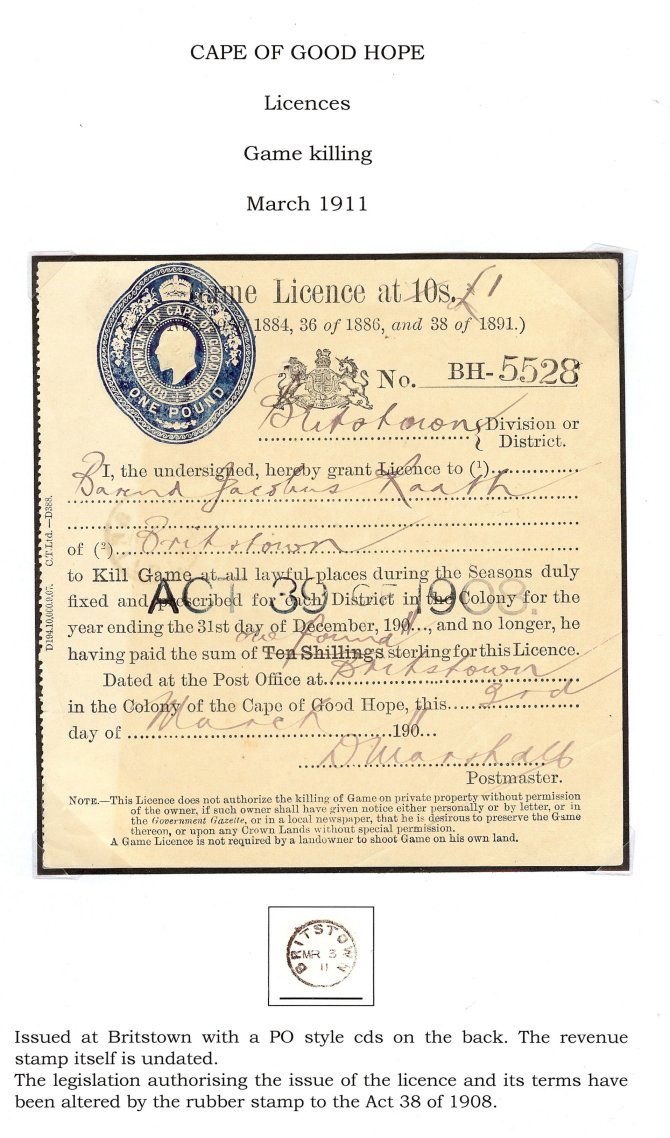 CAPE OF GOOD HOPE
Licences
Game killing
March 1911
Game Licence at 10s. £1
1884, 36 of 1886, and 38 of 1891.)
GOVERNMENT OF CAPE OF GOOD HOPE
ONE POUND
No. BH-5528
Britstown
Division or
District.
I, the undersigned, hereby grant Licence to (1)
Barend Jacobus Raath
of (2) Britstown
to Kill Game at all lawful places during the Seasons duly
fixed and prescribed for each District in the Colony for the
ACT 39 OF 1908.
year ending the 31st day of December, 190 11, and no longer, he
one pound
having paid the sum of Ten Shillings sterling for this Licence.
Dated at the Post Office at Britstown
in the Colony of the Cape of Good Hope, this 3rd
day of March 190 11
D Marshall
Postmaster.
NOTE.—This Licence does not authorize the killing of Game on private property without permission
of the owner, if such owner shall have given notice either personally or by letter, or in
the Government Gazette, or in a local newspaper, that he is desirous to preserve the Game
thereon, or upon any Crown Lands without special permission.
A Game Licence is not required by a landowner to shoot Game on his own land.
D194.10,000.9.07. C.T.Ltd.—D388.
BRITSTOWN
MR 3
11
Issued at Britstown with a PO style cds on the back. The revenue
stamp itself is undated.
The legislation authorising the issue of the licence and its terms have
been altered by the rubber stamp to the Act 38 of 1908.